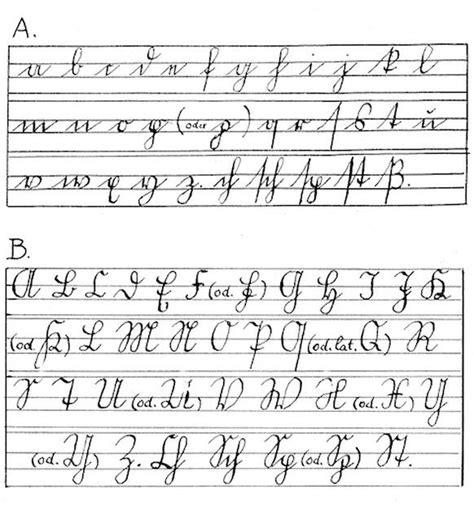 A.
a b c d e f g h i j k l
m n o p (oder p) q r ſ s t u
v w x y z. ch ſch ſp ſt ß.
B.
A B C D E F (od. F) G H I J K
(od. K) L M N O P Q (od. lat. Q) R
S T U (od. U) V W X (od. X) Y
(od. Y) Z. Ch Sch Sp (od. Sp) St.